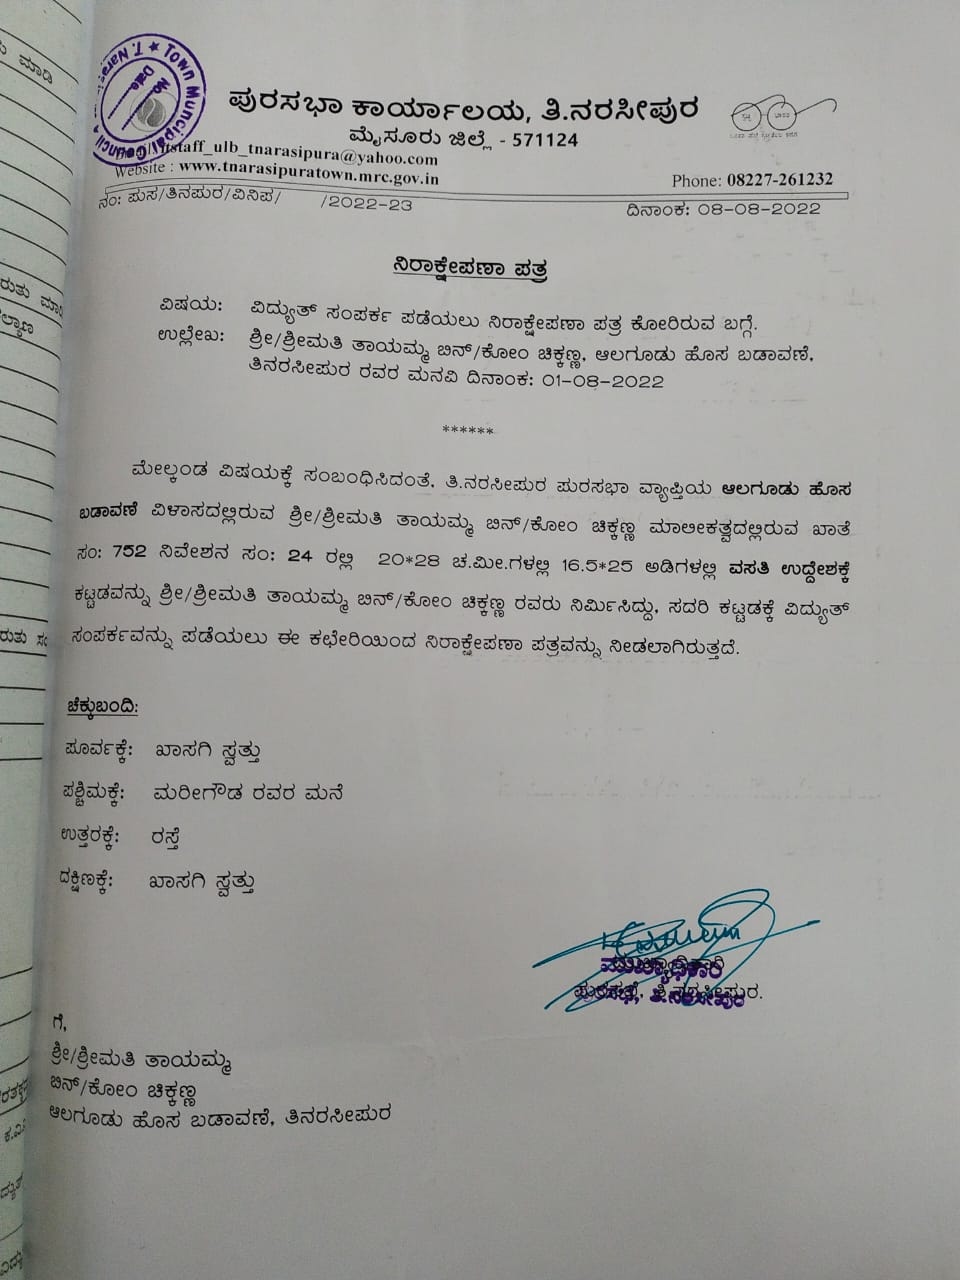 ಪುರಸಭಾ ಕಾರ್ಯಾಲಯ, ತಿ.ನರಸೀಪುರ
ಮೈಸೂರು ಜಿಲ್ಲೆ - 571124
itstaff_ulb_tnarasipura@yahoo.com
Website : www.tnarasipuratown.mrc.gov.in
Phone: 08227-261232
ನಂ: ಪುಸ/ತಿನಪುರ/ವಿನಿಪ/ /2022-23
ದಿನಾಂಕ: 08-08-2022
ನಿರಾಕ್ಷೇಪಣಾ ಪತ್ರ
ವಿಷಯ: ವಿದ್ಯುತ್ ಸಂಪರ್ಕ ಪಡೆಯಲು ನಿರಾಕ್ಷೇಪಣಾ ಪತ್ರ ಕೋರಿರುವ ಬಗ್ಗೆ.
ಉಲ್ಲೇಖ: ಶ್ರೀ/ಶ್ರೀಮತಿ ತಾಯಮ್ಮ ಬಿನ್/ಕೋಂ ಚಿಕ್ಕಣ್ಣ, ಆಲಗೂಡು ಹೊಸ ಬಡಾವಣೆ,
ತಿನರಸೀಪುರ ರವರ ಮನವಿ ದಿನಾಂಕ: 01-08-2022
******
ಮೇಲ್ಕಂಡ ವಿಷಯಕ್ಕೆ ಸಂಬಂಧಿಸಿದಂತೆ, ತಿ.ನರಸೀಪುರ ಪುರಸಭಾ ವ್ಯಾಪ್ತಿಯ ಆಲಗೂಡು ಹೊಸ
ಬಡಾವಣೆ ವಿಳಾಸದಲ್ಲಿರುವ ಶ್ರೀ/ಶ್ರೀಮತಿ ತಾಯಮ್ಮ ಬಿನ್/ಕೋಂ ಚಿಕ್ಕಣ್ಣ ಮಾಲೀಕತ್ವದಲ್ಲಿರುವ ಖಾತೆ
ಸಂ: 752 ನಿವೇಶನ ಸಂ: 24 ರಲ್ಲಿ 20*28 ಚ.ಮೀ.ಗಳಲ್ಲಿ 16.5*25 ಅಡಿಗಳಲ್ಲಿ ವಸತಿ ಉದ್ದೇಶಕ್ಕೆ
ಕಟ್ಟಡವನ್ನು ಶ್ರೀ/ಶ್ರೀಮತಿ ತಾಯಮ್ಮ ಬಿನ್/ಕೋಂ ಚಿಕ್ಕಣ್ಣ ರವರು ನಿರ್ಮಿಸಿದ್ದು, ಸದರಿ ಕಟ್ಟಡಕ್ಕೆ ವಿದ್ಯುತ್
ಸಂಪರ್ಕವನ್ನು ಪಡೆಯಲು ಈ ಕಛೇರಿಯಿಂದ ನಿರಾಕ್ಷೇಪಣಾ ಪತ್ರವನ್ನು ನೀಡಲಾಗಿರುತ್ತದೆ.
ಚೆಕ್ಕುಬಂದಿ:
ಪೂರ್ವಕ್ಕೆ: ಖಾಸಗಿ ಸ್ವತ್ತು
ಪಶ್ಚಿಮಕ್ಕೆ: ಮರೀಗೌಡ ರವರ ಮನೆ
ಉತ್ತರಕ್ಕೆ: ರಸ್ತೆ
ದಕ್ಷಿಣಕ್ಕೆ: ಖಾಸಗಿ ಸ್ವತ್ತು
ಮುಖ್ಯಾಧಿಕಾರಿ
ಪುರಸಭೆ, ತಿ.ನರಸೀಪುರ.
ಗೆ,
ಶ್ರೀ/ಶ್ರೀಮತಿ ತಾಯಮ್ಮ
ಬಿನ್/ಕೋಂ ಚಿಕ್ಕಣ್ಣ
ಆಲಗೂಡು ಹೊಸ ಬಡಾವಣೆ, ತಿನರಸೀಪುರ